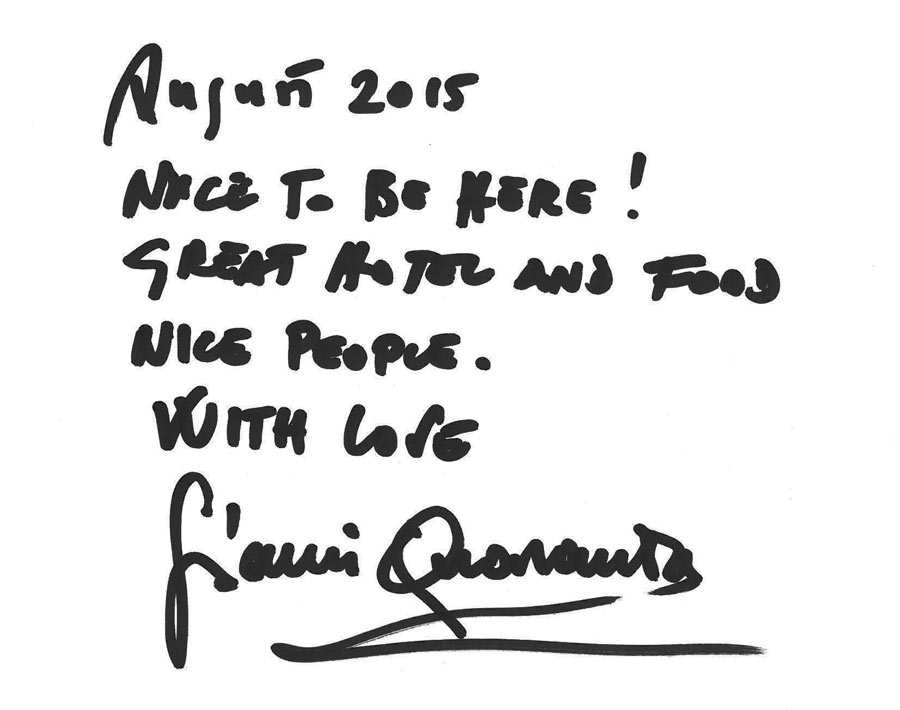 August 2015
NICE TO BE HERE!
GREAT HOTEL AND FOOD
NICE PEOPLE.
WITH LOVE
Gianni Quaranta